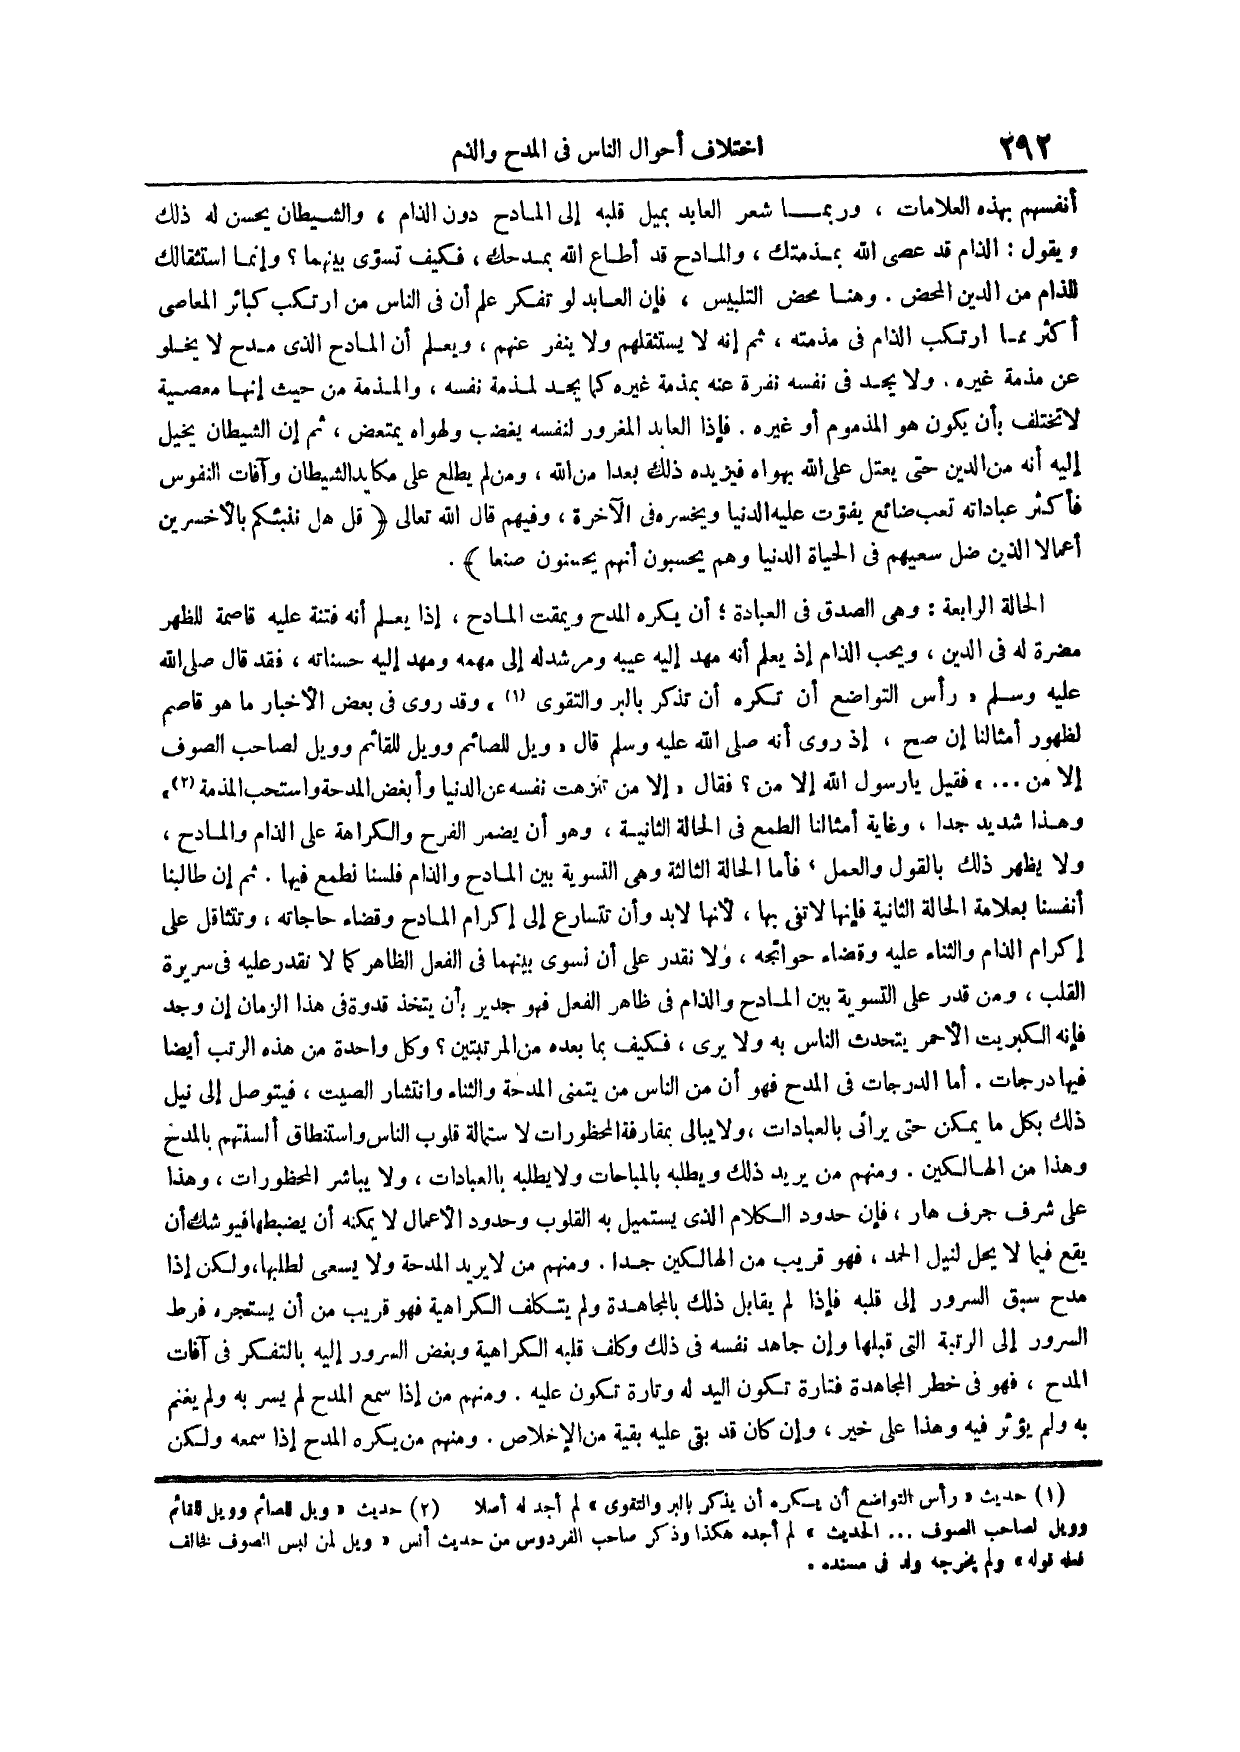 ٢٩٢
اختلاف أحوال الناس فى المدح والذم
أنفسهم بهذه العلامات ، وربمـــا شعر العابد بميل قلبه إلى المـادح دون الذام ، والشـيطان يحسن له ذلك
ويقول : الذام قد عصى الله بمـذمتك ، والمـادح قد أطـاع الله بمـدحك ، فـكيف تسوّى بينهما ؟ وإنمـا استثقالك
للذام من الدين المحض . وهـذا محض التلبيس ، فإن العـابد لو تفـكر علم أن فى الناس من ارتـكب كبائر المعاصى
أكثر ممـا ارتـكب الذام فى مذمته ، ثم إنه لا يستثقلهم ولا ينفر عنهم ، ويعـلم أن المـادح الذى مـدح لا يخـلو
عن مذمة غيره . ولا يجـد فى نفسه نفرة عنه بمذمة غيره كما يجـد لمـذمة نفسه ، والمـذمة من حيث إنهـا معصـية
لاتختلف بأن يكون هو المذموم أو غيره . فإذا العابد المغرور لنفسه يغضب ولهواه يمتعض ، ثم إن الشيطان يخيل
إليه أنه من الدين حتى يعتل على الله بهواه فيزيده ذلك بعدا من الله ، ومن لم يطلع على مكايد الشيطان وآفات النفوس
فأكثر عباداته تعب ضائع يفوّت عليه الدنيا ويخسره فى الآخرة ، وفيهم قال الله تعالى ﴿ قل هل ننبئكم بالأخسرين
أعمالا الذين ضل سعيهم فى الحياة الدنيا وهم يحسبون أنهم يحسنون صنعا ﴾ .
الحالة الرابعة : وهى الصدق فى العبادة ؛ أن يـكره المدح ويمقت المـادح ، إذا يعـلم أنه فتنة عليه قاصمة للظهر
مضرة له فى الدين ، ويحب الذام إذ يعلم أنه مهد إليه عيبه ومرشد له إلى مهمه ومهد إليه حسناته ، فقد قال صلى الله
عليه وسلم « رأس التواضع أن تـكره أن تذكر بالبر والتقوى (١) » وقد روى فى بعض الأخبار ما هو قاصم
لظهور أمثالنا إن صح ، إذ روى أنه صلى الله عليه وسلم قال « ويل للصائم وويل للقائم وويل لصاحب الصوف
إلا من ... » فقيل يارسول الله إلا من ؟ فقال « إلا من تنزهت نفسه عن الدنيا وأبغض المدحة واستحب المذمة (٢) »
وهـذا شديد جدا ، وغاية أمثالنا الطمع فى الحالة الثانيـة ، وهو أن يضمر الفرح والكراهة على الذام والمـادح ،
ولا يظهر ذلك بالقول والعمل ، فأما الحالة الثالثة وهى التسوية بين المـادح والذام فلسنا نطمع فيها . ثم إن طالبنا
أنفسنا بعلامة الحالة الثانية فإنها لاتفى بها ، لأنها لابد وأن تتسارع إلى إكرام المـادح وقضاء حاجاته ، وتتثاقل على
إكرام الذام والثناء عليه وقضاء حوائجه ، ولا نقدر على أن نسوى بينهما فى الفعل الظاهر كما لا نقدر عليه فى سريرة
القلب ، ومن قدر على التسوية بين المـادح والذام فى ظاهر الفعل فهو جدير بأن يتخذ قدوة فى هذا الزمان إن وجد
فإنه الكبريت الأحمر يتحدث الناس به ولا يرى ، فـكيف بما بعده من المرتبتين ؟ وكل واحدة من هذه الرتب أيضا
فيها درجات . أما الدرجات فى المدح فهو أن من الناس من يتمنى المدحة والثناء وانتشار الصيت ، فيتوصل إلى نيل
ذلك بكل ما يمـكن حتى يرائى بالعبادات ، ولا يبالى بمقارفة المحظورات لاستمالة قلوب الناس واستنطاق ألسنتهم بالمدح
وهذا من الهـالـكين . ومنهم من يريد ذلك ويطلبه بالمباحات ولا يطلبه بالعبادات ، ولا يباشر المحظورات ، وهذا
على شرف جرف هار ، فإن حدود الـكلام الذى يستميل به القلوب وحدود الأعمال لا يمكنه أن يضبطها فيوشك أن
يقع فيما لا يحل لنيل الحمد ، فهو قريب من الهالكين جـدا . ومنهم من لا يريد المدحة ولا يسعى لطلبها ، ولـكن إذا
مدح سبق السرور إلى قلبه فإذا لم يقابل ذلك بالمجاهدة ولم يتـكلف الـكراهية فهو قريب من أن يستجره فرط
السرور إلى الرتبة التى قبلها وإن جاهد نفسه فى ذلك وكلف قلبه الـكراهية وبغض السرور إليه بالتفـكر فى آفات
المدح ، فهو فى خطر المجاهدة فتارة تـكون اليد له وتارة تـكون عليه . ومنهم من إذا سمع المدح لم يسر به ولم يغتم
به ولم يؤثر فيه وهذا على خير ، وإن كان قد بقى عليه بقية من الإخلاص . ومنهم من يـكره المدح إذا سمعه ولـكن
(١) حديث « رأس التواضع أن يـكره أن يذكر بالبر والتقوى » لم أجد له أصلا (٢) حديث « ويل للصائم وويل للقائم
وويل لصاحب الصوف ... الحديث » لم أجده هكذا وذكر صاحب الفردوس من حديث أنس « ويل لمن لبس الصوف فخالف
فعله قوله » ولم يخرجه ولد فى مسنده .